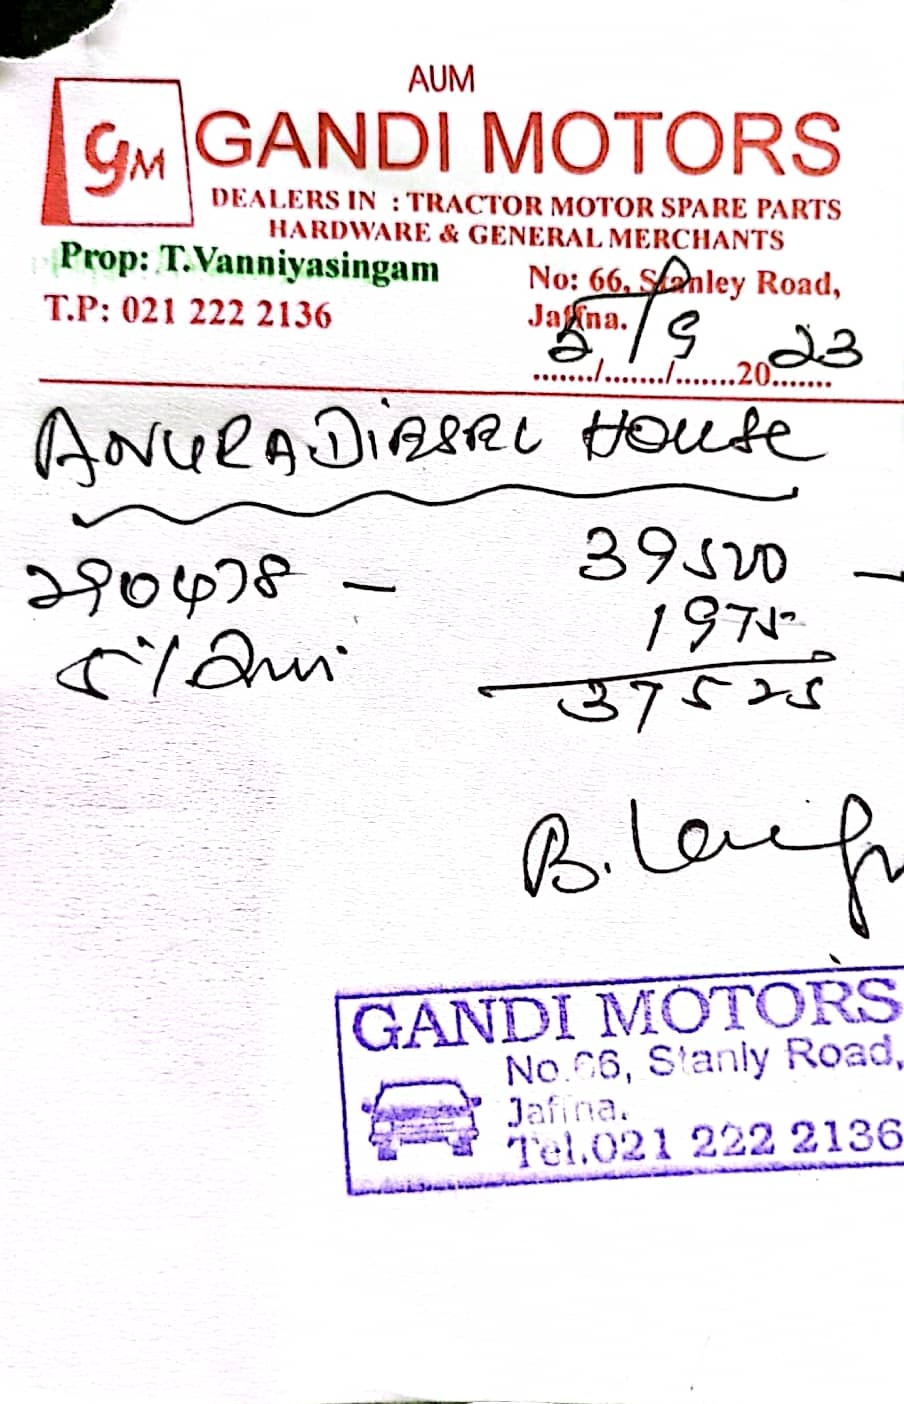 AUM
GM GANDI MOTORS
DEALERS IN : TRACTOR MOTOR SPARE PARTS
HARDWARE & GENERAL MERCHANTS
Prop: T.Vanniyasingam
No: 66, Stanley Road,
T.P: 021 222 2136
Jaffna.
5/9 2023
ANURA DIESEL HOUSE
290478 - 39500 -
5%
1975
37525
B.
GANDI MOTORS
No.66, Stanly Road,
Jaffna.
Tel.021 222 2136